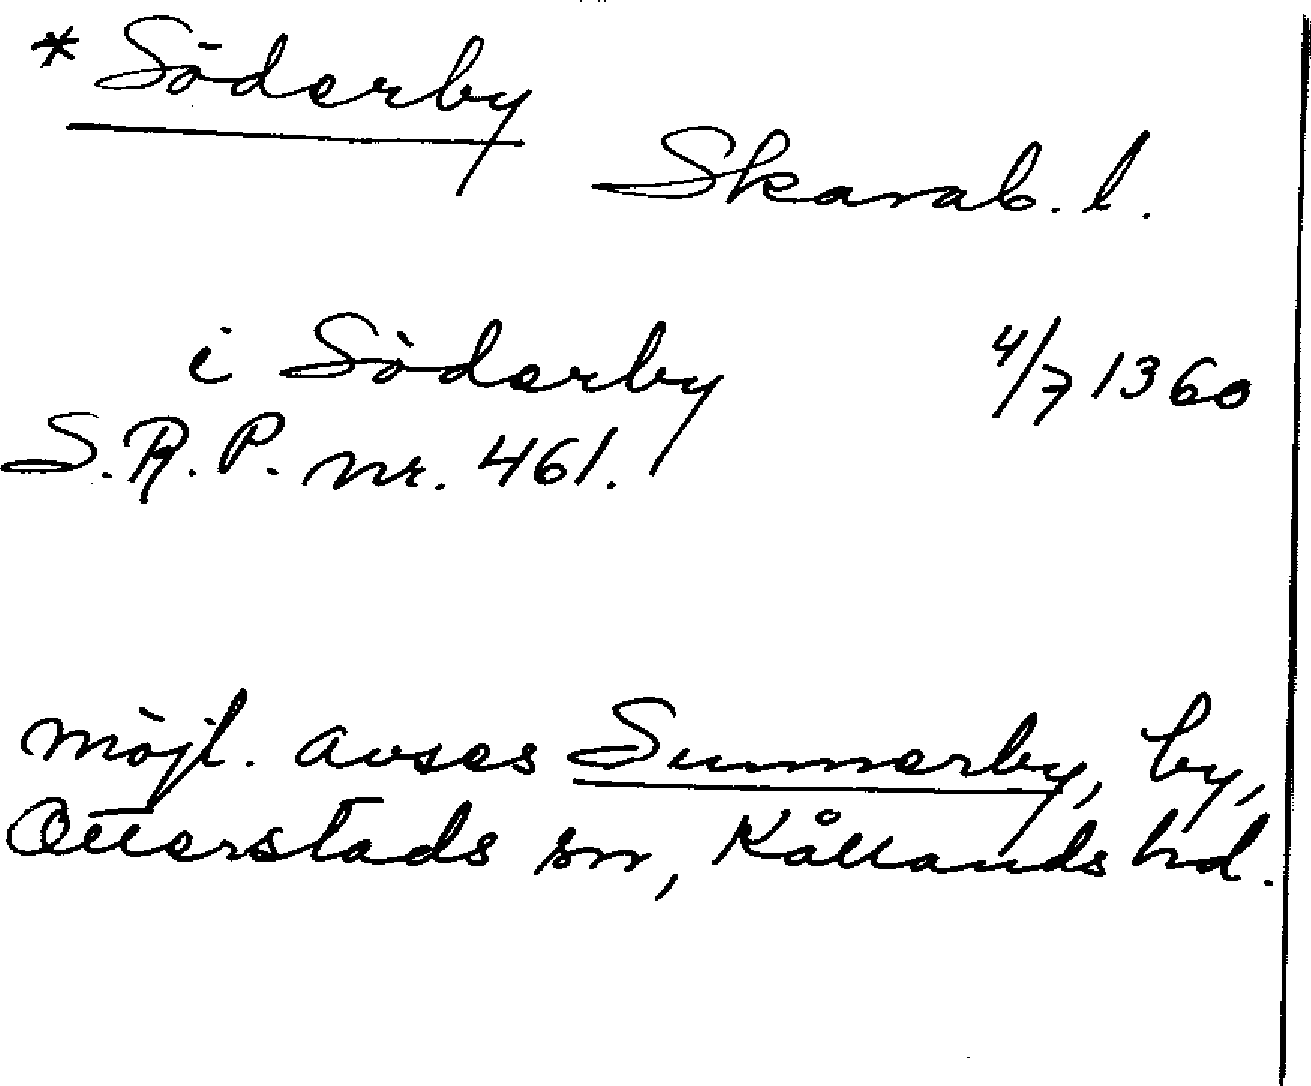 * Söderby
Skarab. l.
i Söderby 4/7 1360
S.R.P. nr. 461.
möjl. avses Sunnerby, by,
Otterstads sn, Kållands hd.